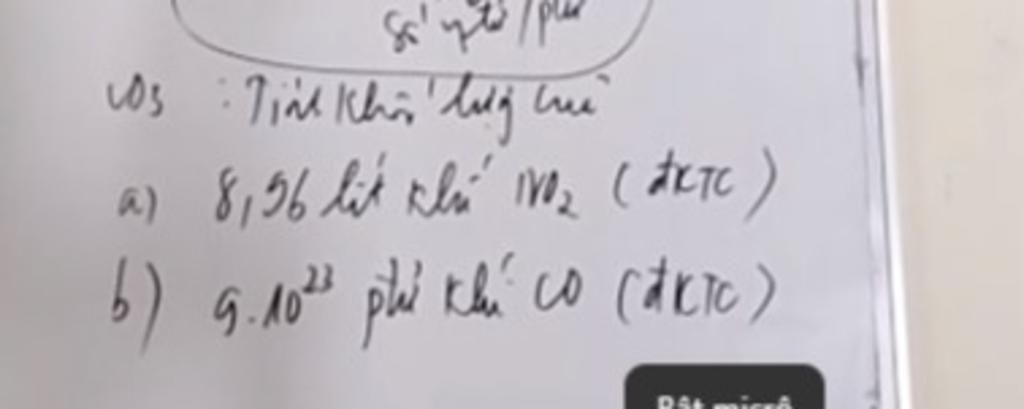 số ptử/phtử
VD3 : Tính khối lượng của
a) 8,96 lít khí NO₂ (đKTC)
b) 9.10²³ ptử khí CO (đKTC)
Bật micrô